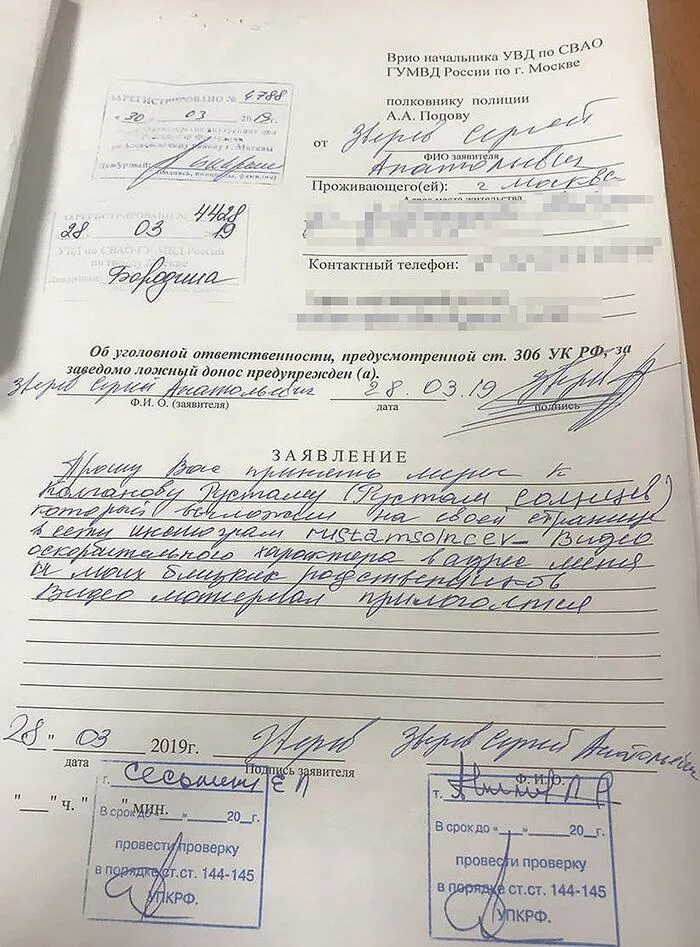 Врио начальника УВД по СВАО
ГУМВД России по г. Москве
полковнику полиции
А.А. Попову
от Зверев Сергей
ФИО заявителя
Анатольевич
Проживающего(ей): г Москва
Адрес места жительства
Контактный телефон:
ЗАРЕГИСТРИРОВАНО № 4788
"30" 03 2019г.
Дежурный:
(подпись, инициалы, фамилия)
ЗАРЕГИСТРИРОВАНО № 4428
28 03 19
УВД по СВАО ГУ МВД России
по г. Москве
Бородина
Об уголовной ответственности, предусмотренной ст. 306 УК РФ, за
заведомо ложный донос предупрежден (а).
Зверев Сергей Анатольевич 28.03.19
Ф.И. О. (заявителя) дата подпись
ЗАЯВЛЕНИЕ
Прошу Вас принять меры к
Колганову Рустаму (Рустам Солнцев)
который выложил на своей странице
в сети инстограм rustamsolncev_ Видео
оскорбительного характера в адрес меня
и моих близких родственников
Видео материал прилогается
28 " 03 2019г. Зверев Зверев Сергей Анатольевич
дата Подпись заявителя Ф.И.О.
"___" ч. "___" мин.
г.
В срок до «__» ____ 20__г.
провести проверку
в порядке ст.ст. 144-145
УПКРФ.
т.
В срок до «__» ____ 20__г.
провести проверку
в порядке ст.ст. 144-145
УПКРФ.